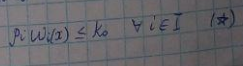 ρi Wi(x) ≤ K₀ ∀ i ∈ I (*)